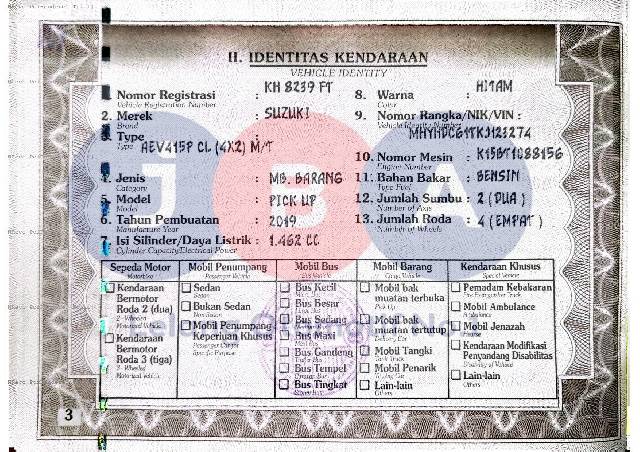 II. IDENTITAS KENDARAAN
VEHICLE IDENTITY
1. Nomor Registrasi : KH 8239 FT
Vehicle Registration Number
2. Merek : SUZUKI
Brand
3. Type : AEV415P CL (4X2) M/T
Type
4. Jenis : MB. BARANG
Category
5. Model : PICK UP
Model
6. Tahun Pembuatan : 2019
Manufacture Year
7. Isi Silinder/Daya Listrik : 1.462 CC
Cylinder Capacity/Electrical Power
8. Warna : HITAM
Color
9. Nomor Rangka/NIK/VIN :
Vehicle Identity Number
MHYHDC61TKJ123274
10. Nomor Mesin : K15BT1088156
Engine Number
11. Bahan Bakar : BENSIN
Type Fuel
12. Jumlah Sumbu : 2 (DUA)
Number of Axis
13. Jumlah Roda : 4 (EMPAT)
Number of Wheels
Sepeda Motor
Motorbike
Kendaraan
Bermotor
Roda 2 (dua)
2-Wheeled
Motorized Vehicle
Kendaraan
Bermotor
Roda 3 (tiga)
3-Wheeled
Motorized Vehicle
Mobil Penumpang
Passenger Vehicle
Sedan
Sedan
Bukan Sedan
Non Sedan
Mobil Penumpang
Keperluan Khusus
Passenger Car for
Specific Purpose
Mobil Bus
Bus Vehicle
Bus Kecil
Bus Besar
Bus Sedang
Bus Maxi
Maxi Bus
Bus Gandeng
Bus Tempel
Bus Tingkat
Mobil Barang
Cargo Vehicle
Mobil bak
muatan terbuka
Mobil bak
muatan tertutup
Delivery Car
Mobil Tangki
Tank Truck
Mobil Penarik
Towing Car
Lain-lain
Others
Kendaraan Khusus
Special Vehicle
Pemadam Kebakaran
Fire Extinguisher Truck
Mobil Ambulance
Ambulance
Mobil Jenazah
Hearse
Kendaraan Modifikasi
Penyandang Disabilitas
Disability of Vehicle
Lain-lain
Others
3
JBA